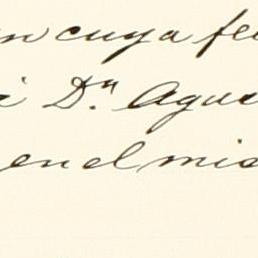 en cuya fe
Dn. Agus
en el mis